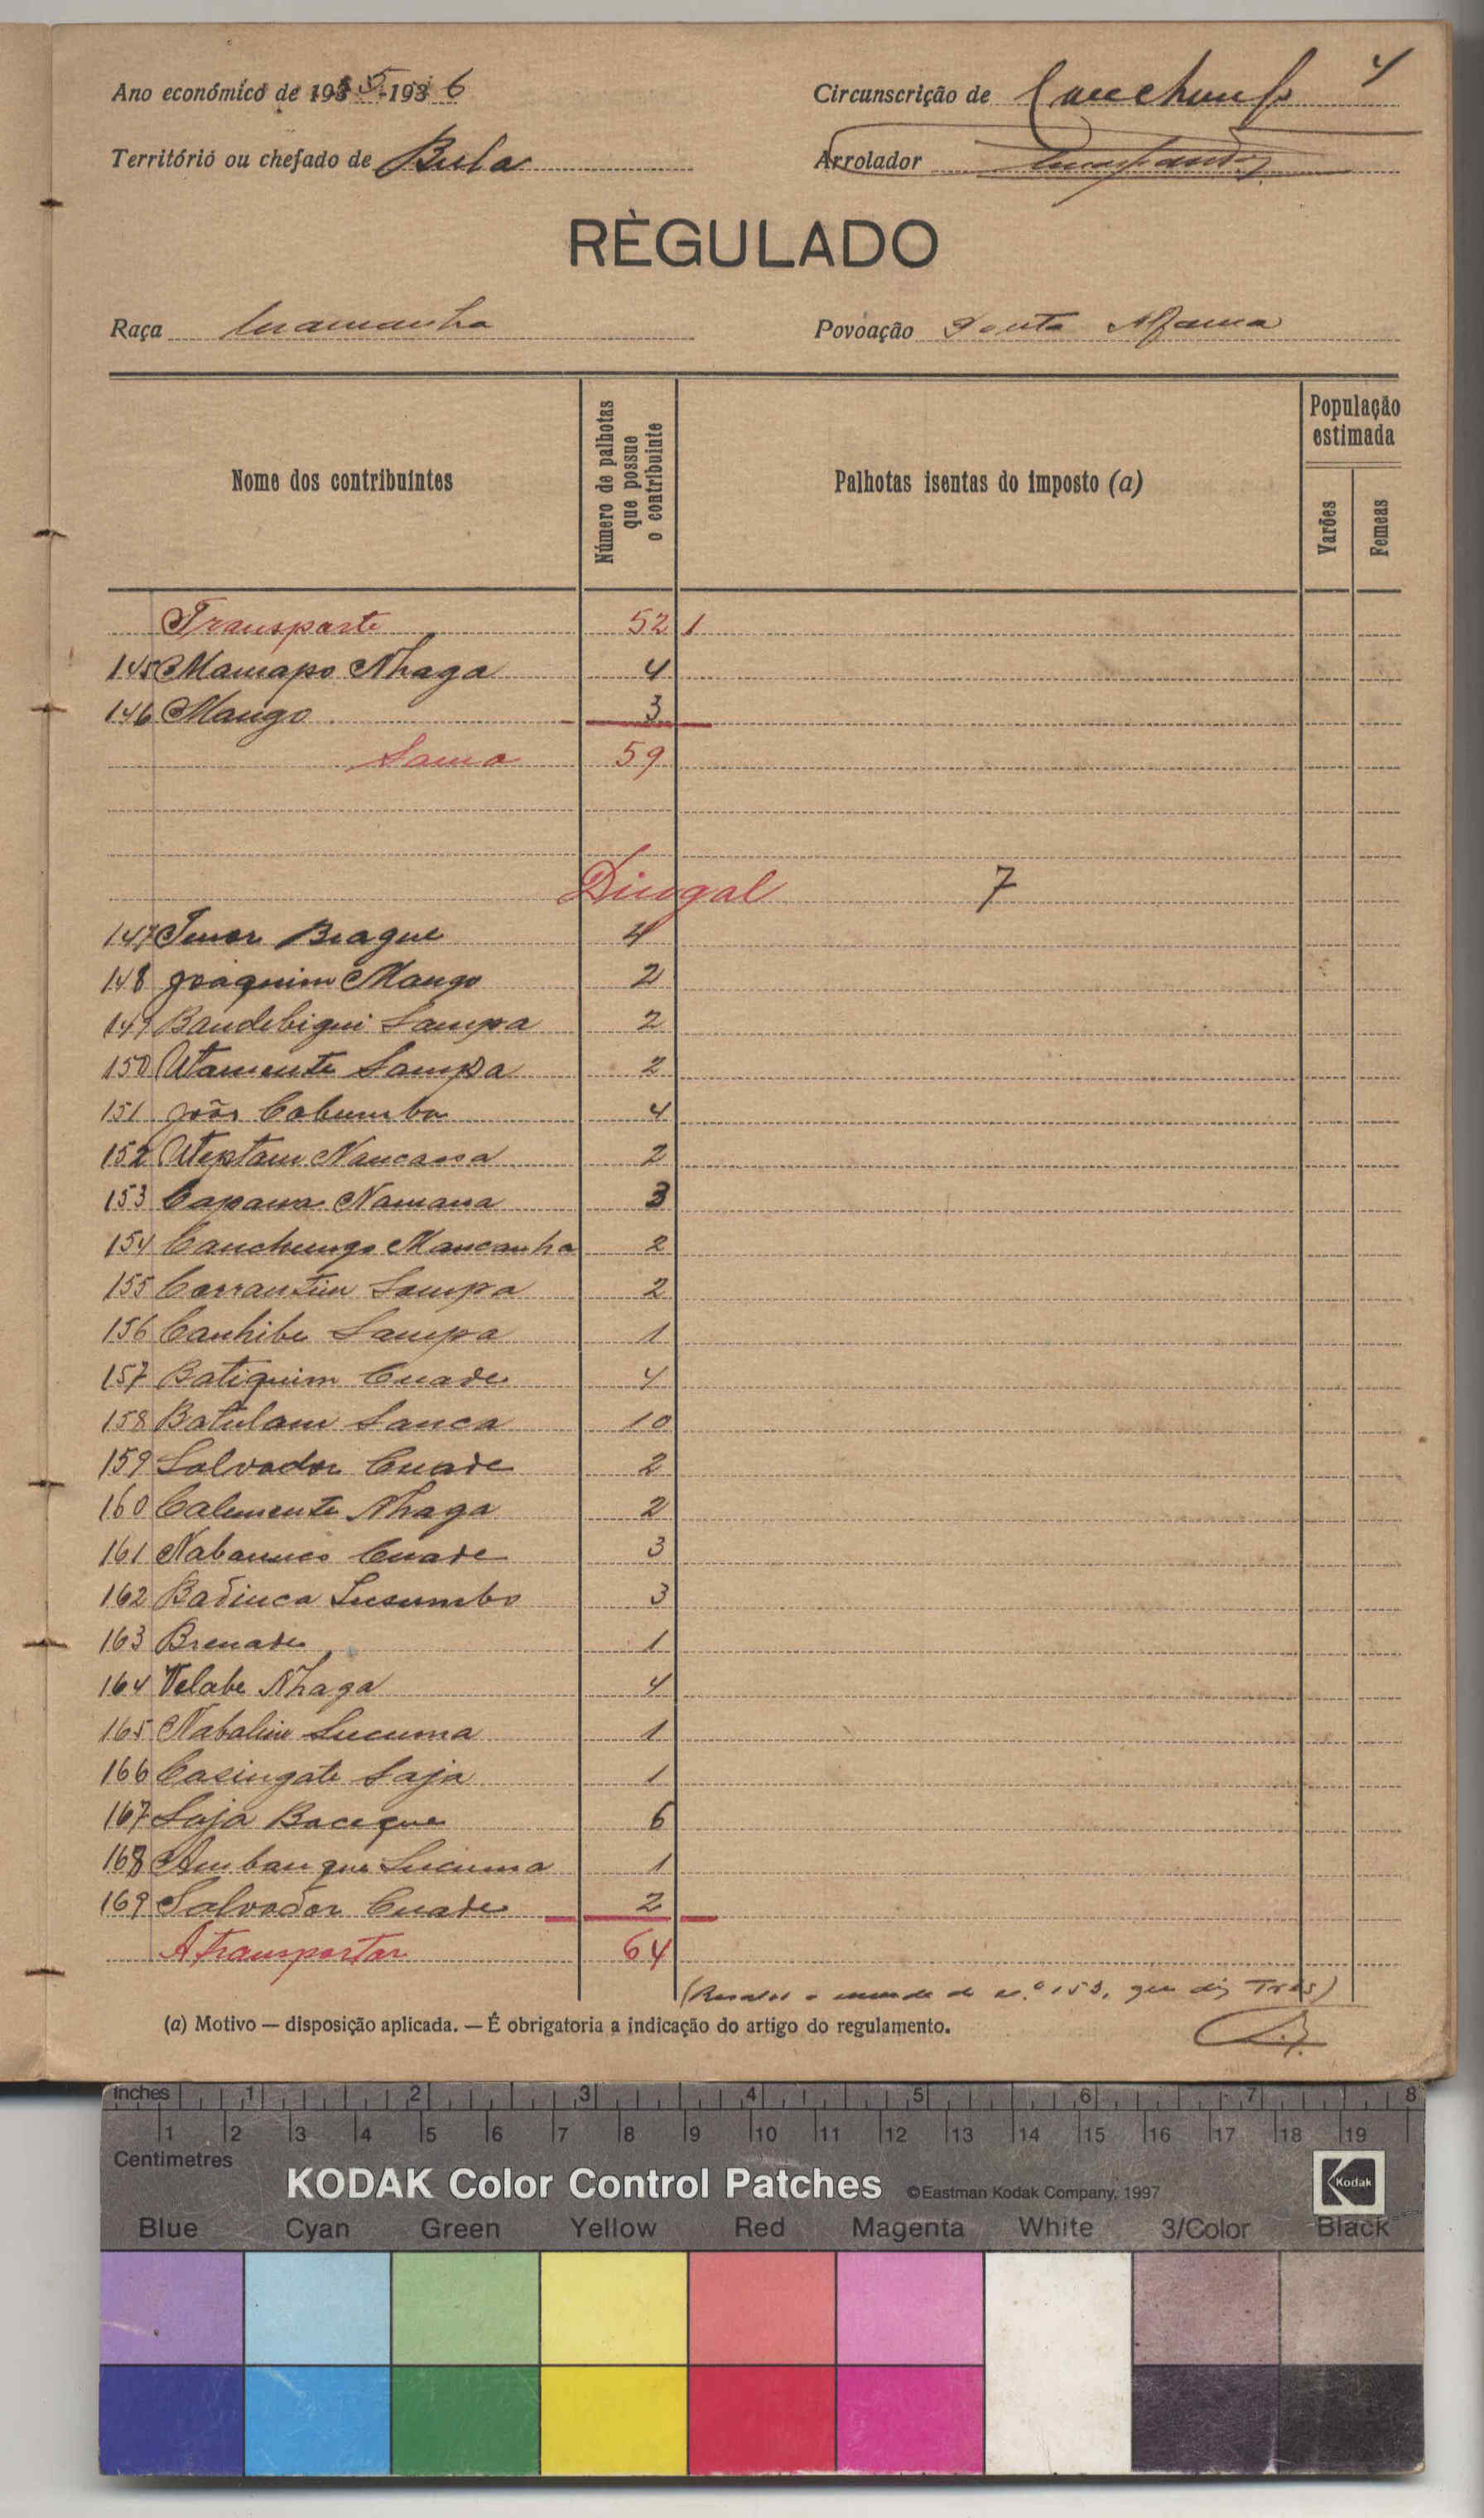 4
Ano económico de 1935-1936
Circunscrição de Canchungo
Território ou chefado de Bula
Arrolador
RÈGULADO
Raça Mamanha
Povoação Ponta
Nome dos contribuintes
Número de palhotas que possue o contribuinte
Palhotas isentas do imposto (a)
População estimada
Varões
Femeas
Transporte 52 1
145 Mamapo Nhaga 4
146 Mango 3
Soma 59
Dingal 7
147 Braque 4
148 Joaquim Mango 2
149 Bandebiqui Sampa 2
150 Utamente Sampa 2
151 João Cobumba 4
152 Uteptam Nancassa 2
153 Capassa Namana 3
154 Canchungo Mancanha 2
155 Carrantim Sampa 2
156 Canhibe Sampa 1
157 Batiquim Cuade 4
158 Batulam Sanca 10
159 Salvador Cuade 2
160 Calemente Nhaga 2
161 Cuade 3
162 Badinca Susumbo 3
163 Brenade 1
164 Velabe Nhaga 4
165 Nabalim Sucuma 1
166 Casingate Saja 1
167 Saja Baceque 6
168 Ambanque Sucuma 1
169 Salvador Cuade 2
A transportar 64
(Ressalvo a emenda do n.º 153, que diz Três)
(a) Motivo — disposição aplicada. — É obrigatoria a indicação do artigo do regulamento.
inches 1 2 3 4 5 6 7 8
1 2 3 4 5 6 7 8 9 10 11 12 13 14 15 16 17 18 19
Centimetres
KODAK Color Control Patches ©Eastman Kodak Company, 1997 Kodak
Blue Cyan Green Yellow Red Magenta White 3/Color Black